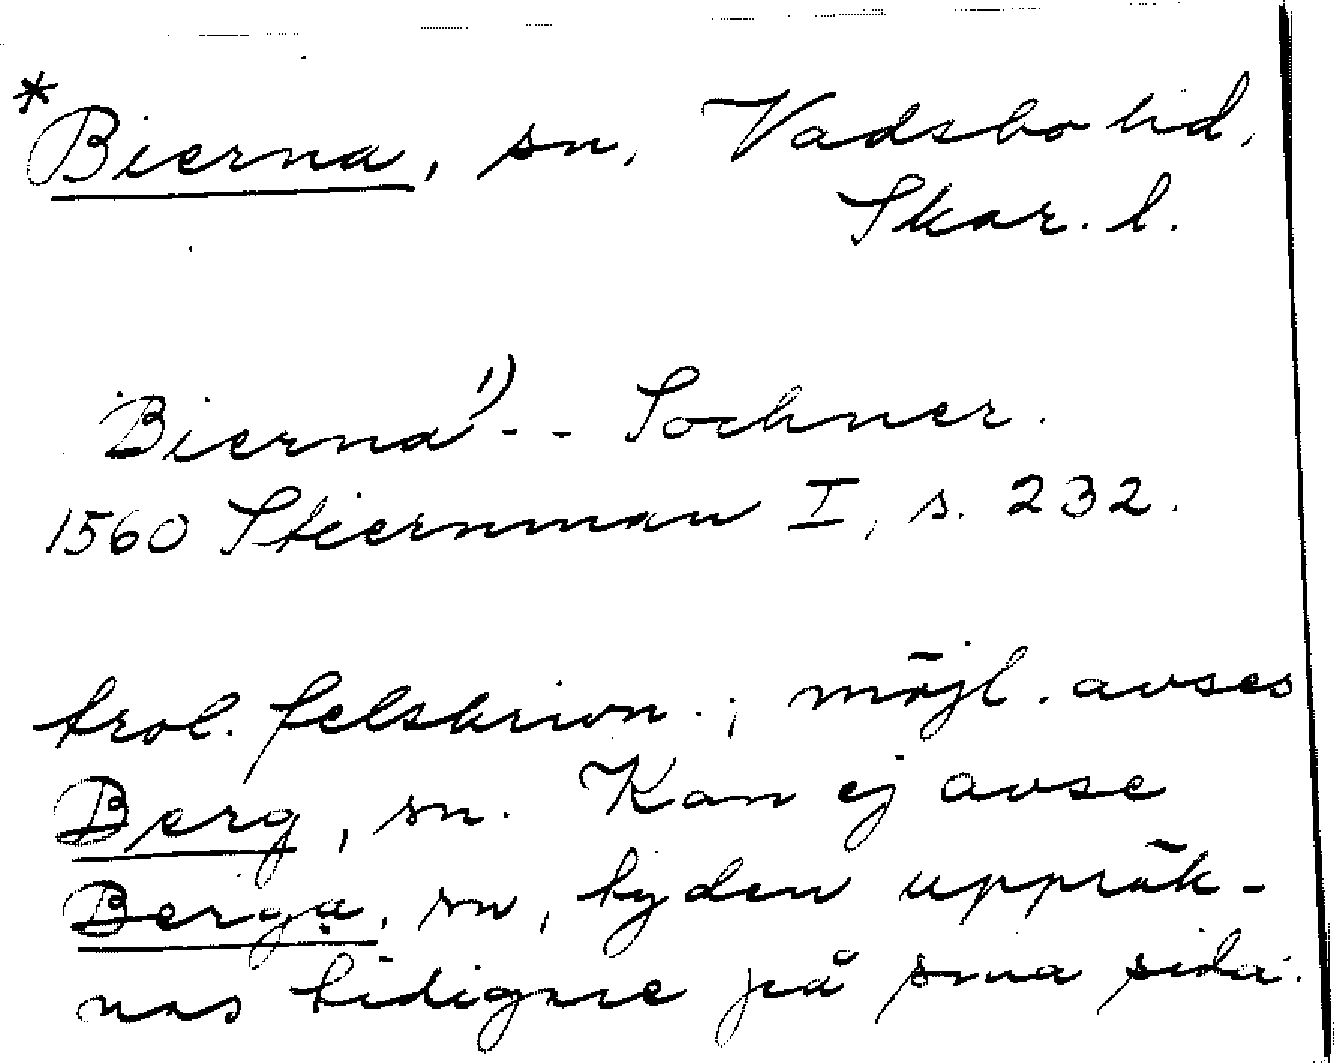 *Bierna, sn, Vadsbo hd,
Skar. l.
Bierna 1) - - Sochner.
1560 Stiernman I, s. 232.
trol. felskrivn.; möjl. avses
Berg, sn. Kan ej avse
Berga, sn, ty den uppräk-
nas tidigare på sma sida.